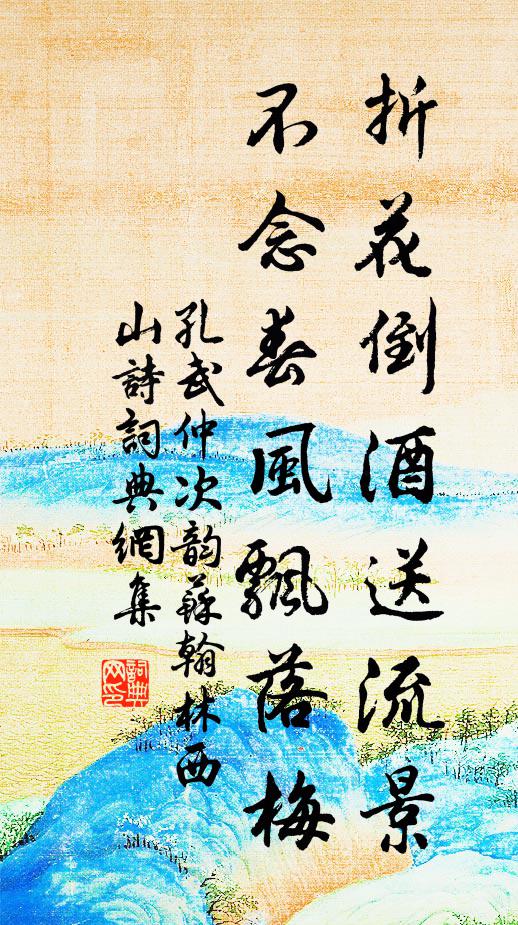 折花倒酒送流景
不念春風飄落梅
孔武仲次韵蘇翰林西
山詩詞典網集
詞典网印